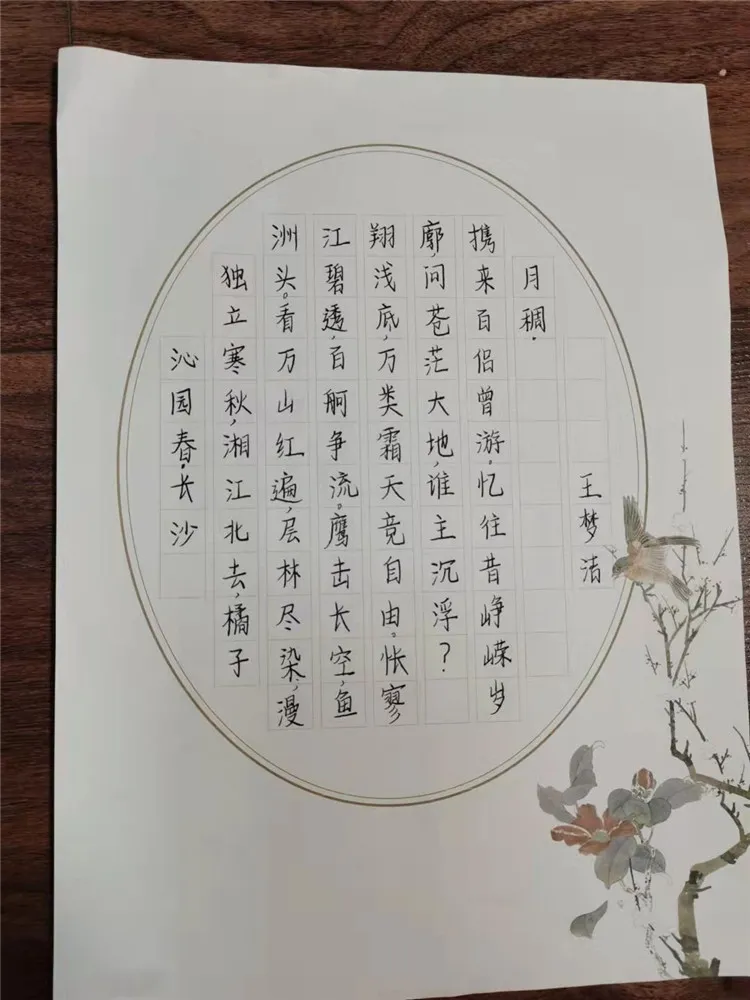 沁园春.长沙
独立寒秋,湘江北去,橘子
洲头。看万山红遍,层林尽染,漫
江碧透,百舸争流。鹰击长空,鱼
翔浅底,万类霜天竟自由。怅寥
廓,问苍茫大地,谁主沉浮?
携来百侣曾游.忆往昔峥嵘岁
月稠.
王梦洁